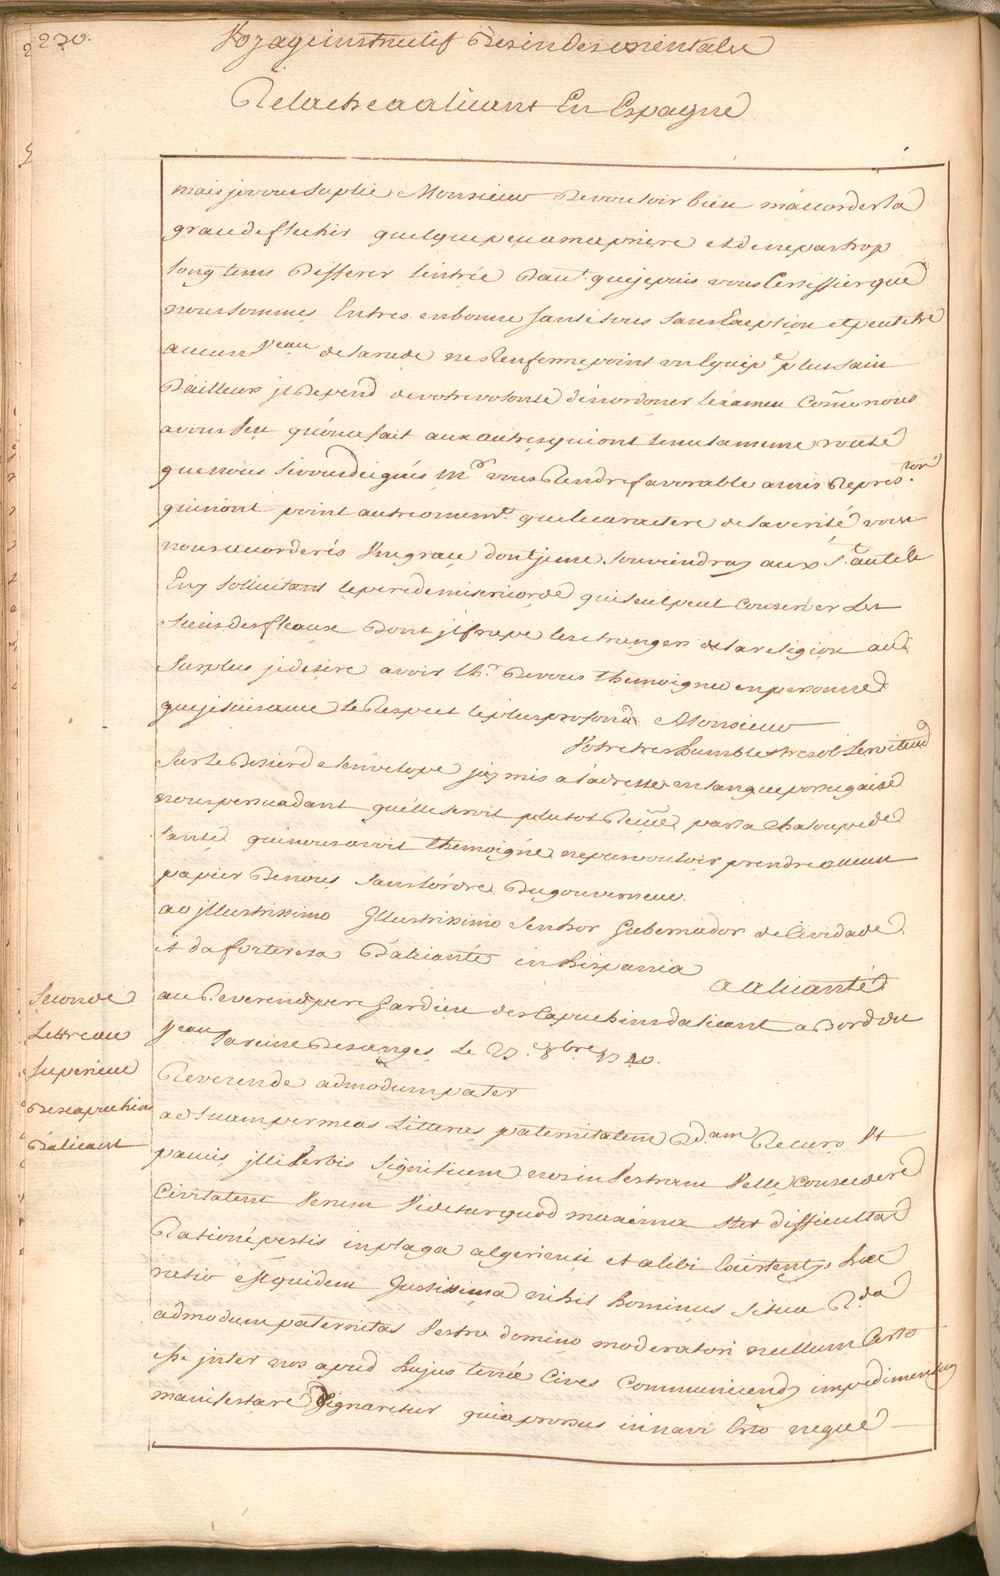 230.
Voyage instructif Des indes orientales
Relache a alicant En Espagne
mais je vous suplie Monsieur De vouloir bien m'accorder la
grace de flechir quelque peu a ma priere et de ne pas trop
long tems Differer l'entrée D'aut. que je puis vous Certiffier que
nous sommes Entres en bonne santé tous sans Exeption et peut etre
aucun Veau de la rade ne Renferme point un Equip.e plus sain
D'ailleurs jl Depend de votre volonté d'en ordoner l'examen Come nous
avons Veu qu'on a fait aux autres qui ont tenu la meme route
que nous si vous deignés Mr vous Rendre favorable a mes Represtons
qui n'ont point autre ornemt. que le caractere de la verité vous
nous accorderés Une grace dont je me souviendray aux St. autels
En y sollicitant le pere de misericorde qui seul peut conserver Les
siens des fleaux Dont jl frape les etrangers de la religion au
surplus je desire avoir lhr. De vous themoigner en personne
que je suis avec le Respect le plus profond Monsieur
Votre tres humble et tres ob. serviteur
Sur le Dossier de l'envelope j'ay mis a l'adresse en langue portugaise
nous persuadant qu'elle seroit plutot Reçüe par la chaloupe de
santé qui nous avoit themoigné ne pas vouloir prendre aucun
papier De nous sans l'ordre Du gouverneur
ao jllustrissimo Jllustrissimo Senhor Gubernador de Cividade
et da forteresa D'alicante in hispania
a alicante
Seconde
Lettre au
Superieur
Des capuchins
D'alicant
au Reverend pere Gardien des Capuchins d'alicant a Bord du
Veau La reine Des anges Le 27. 8bre 1720.
Reverende admodum pater
ad suam per meas Litteras paternitatem Rd.am Recuro Vt
paucis jlli Verbis significem nos in Vestram Velle Conscendere
Civitatem Verum Videtur quod maxima stet difficultas
Ratione pestis in plaga algeriensi et alibi Existentis hæc
ratio est quidem Justissima nihil hominus si tua R.da
admodum paternitas Vestro domino moderatori nullum Certo
esse jnter nos apud hujus terræ Cives Communicandi impedimentum
manifestare Dignaretur quia prorsus in navi Certo neque